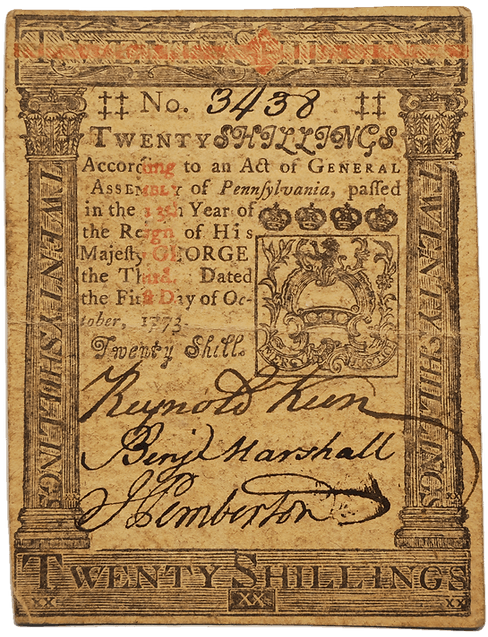 TWENTY SHILLINGS
‡‡ No. 3438 ‡‡
TWENTY SHILLINGS
According to an Act of GENERAL
ASSEMBLY of Pennſylvania, paſſed
in the 13th Year of
the Reign of His
Majeſty GEORGE
the Third. Dated
the Firſt Day of Oc-
tober, 1773.
Twenty Shill.
Reynold Keen
Benj. Marshall
J Pemberton
TWENTY SHILLINGS
TWENTY SHILLINGS
TWENTY SHILLINGS
XX XX XX